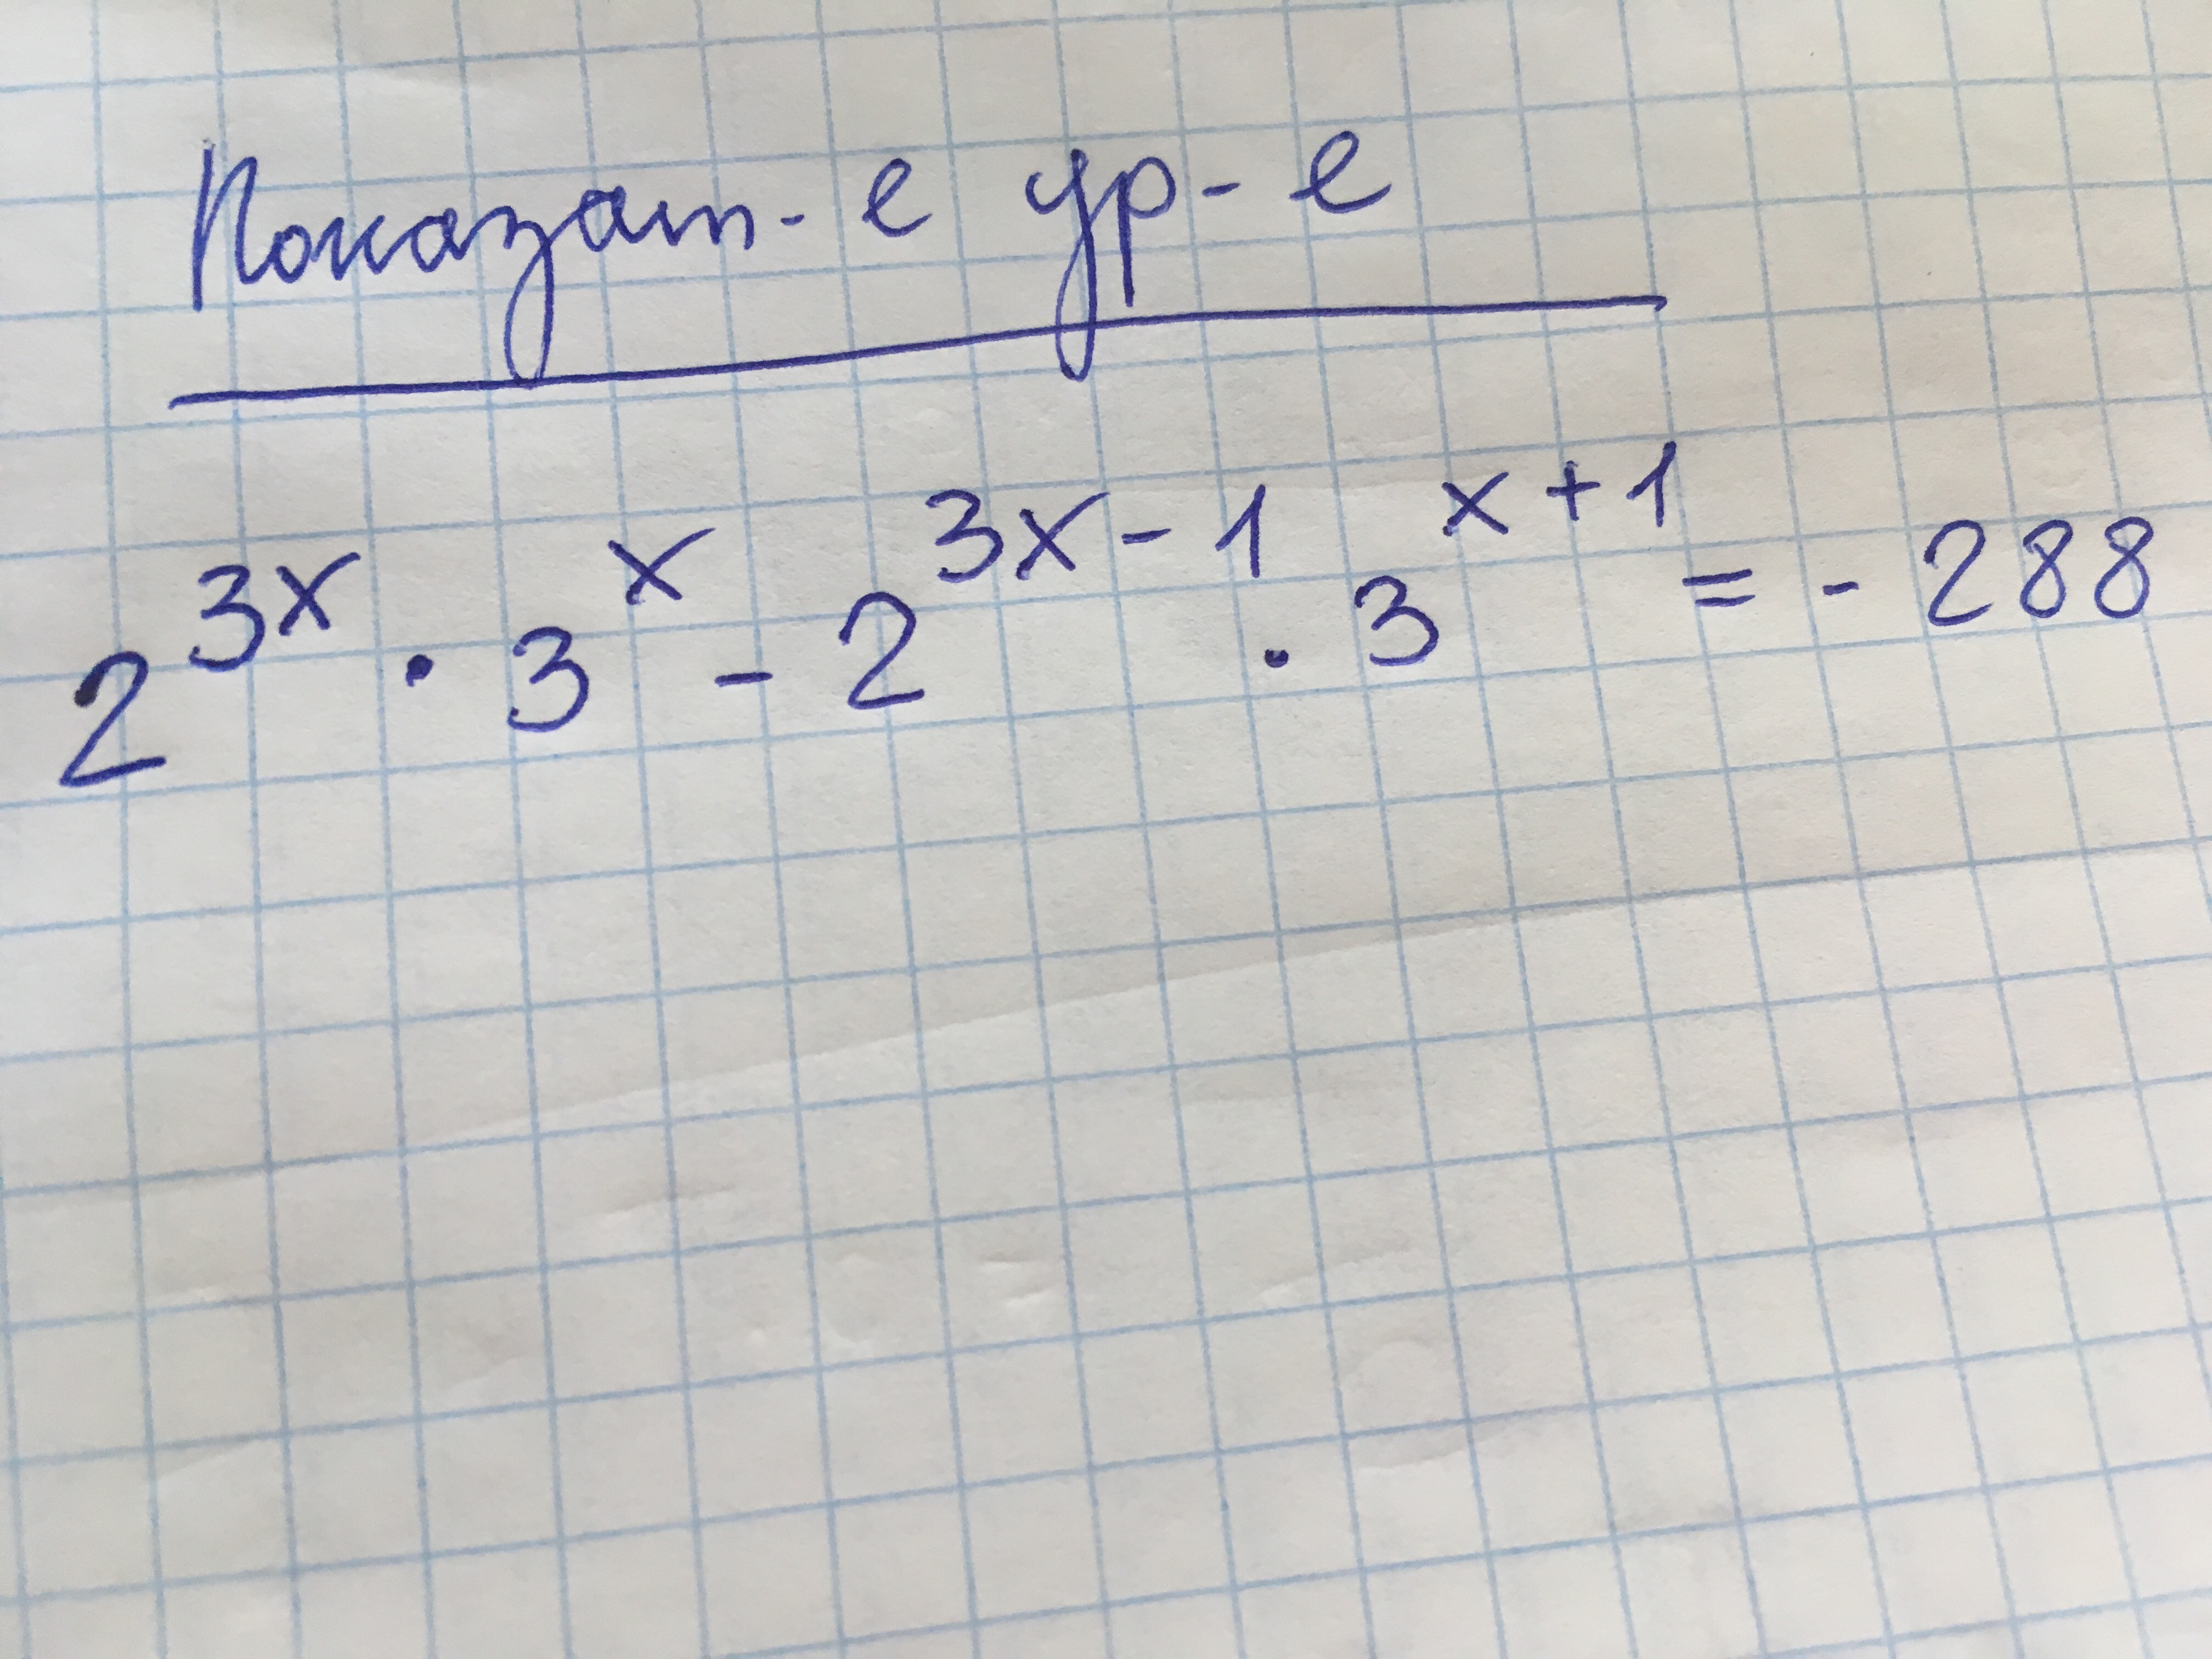 Показат-е ур-е
2^{3x} · 3^x - 2^{3x-1} · 3^{x+1} = -288